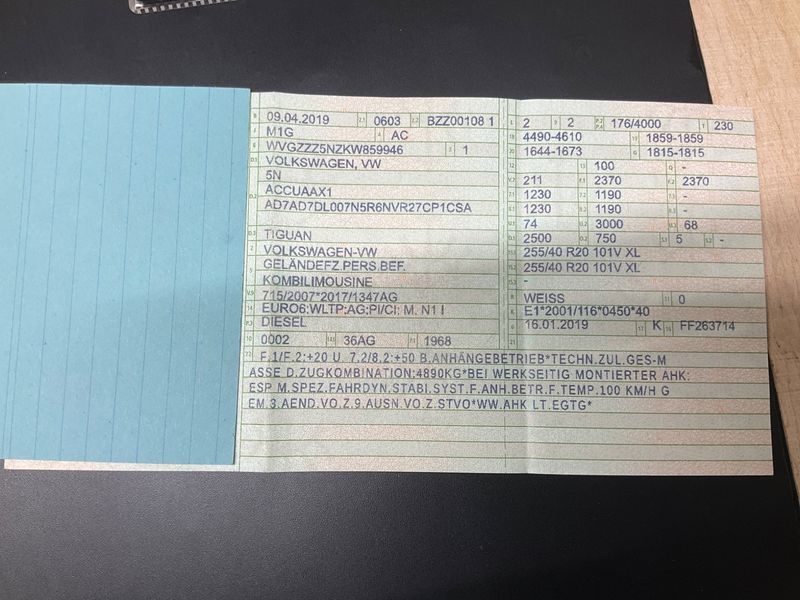 09.04.2019 0603 BZZ00108 1
M1G AC
WVGZZZ5NZKW859946 1
VOLKSWAGEN, VW
5N
ACCUAAX1
AD7AD7DL007N5R6NVR27CP1CSA
TIGUAN
VOLKSWAGEN-VW
GELÄNDEFZ.PERS.BEF.
KOMBILIMOUSINE
715/2007*2017/1347AG
EURO6;WLTP;AG;PI/CI; M, N1 I
DIESEL
0002 36AG 1968
2 2 176/4000 230
4490-4610 1859-1859
1644-1673 1815-1815
100 -
211 2370 2370
1230 1190 -
1230 1190 -
74 3000 68
2500 750 5 -
255/40 R20 101V XL
255/40 R20 101V XL
-
WEISS 0
E1*2001/116*0450*40
16.01.2019 K FF263714
F.1/F.2:+20 U. 7.2/8.2:+50 B.ANHÄNGEBETRIEB*TECHN.ZUL.GES-M
ASSE D.ZUGKOMBINATION:4890KG*BEI WERKSEITIG MONTIERTER AHK:
ESP M.SPEZ.FAHRDYN.STABI.SYST.F.ANH.BETR.F.TEMP.100 KM/H G
EM.3.AEND.VO.Z.9.AUSN.VO.Z.STVO*WW.AHK LT.EGTG*